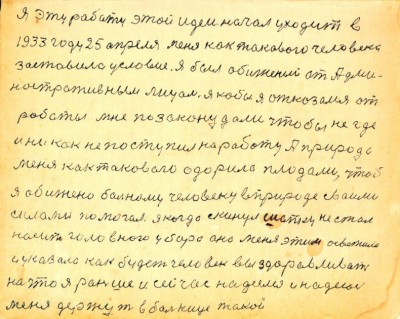 Я эту работу этой идеи начал уходит в
1933 году 25 апреля меня как такавого человека
заставила условие. Я был обижений от Адми-
ностративным лицам. якобы я отказался от
работы мне по закону дали чтобы не где
и ни как не поступил на работу А природа
меня как такаваго одорила плодами, чтоб
я обижено балному человеку в природе сваими
силами помогал. я когда скинул шапку не стал
насить головного убора она меня этим осветила
и указала как будет человек выздаравливать
на что я раньше и сейчас надеялся и надеюс
меня держут в балнице такой